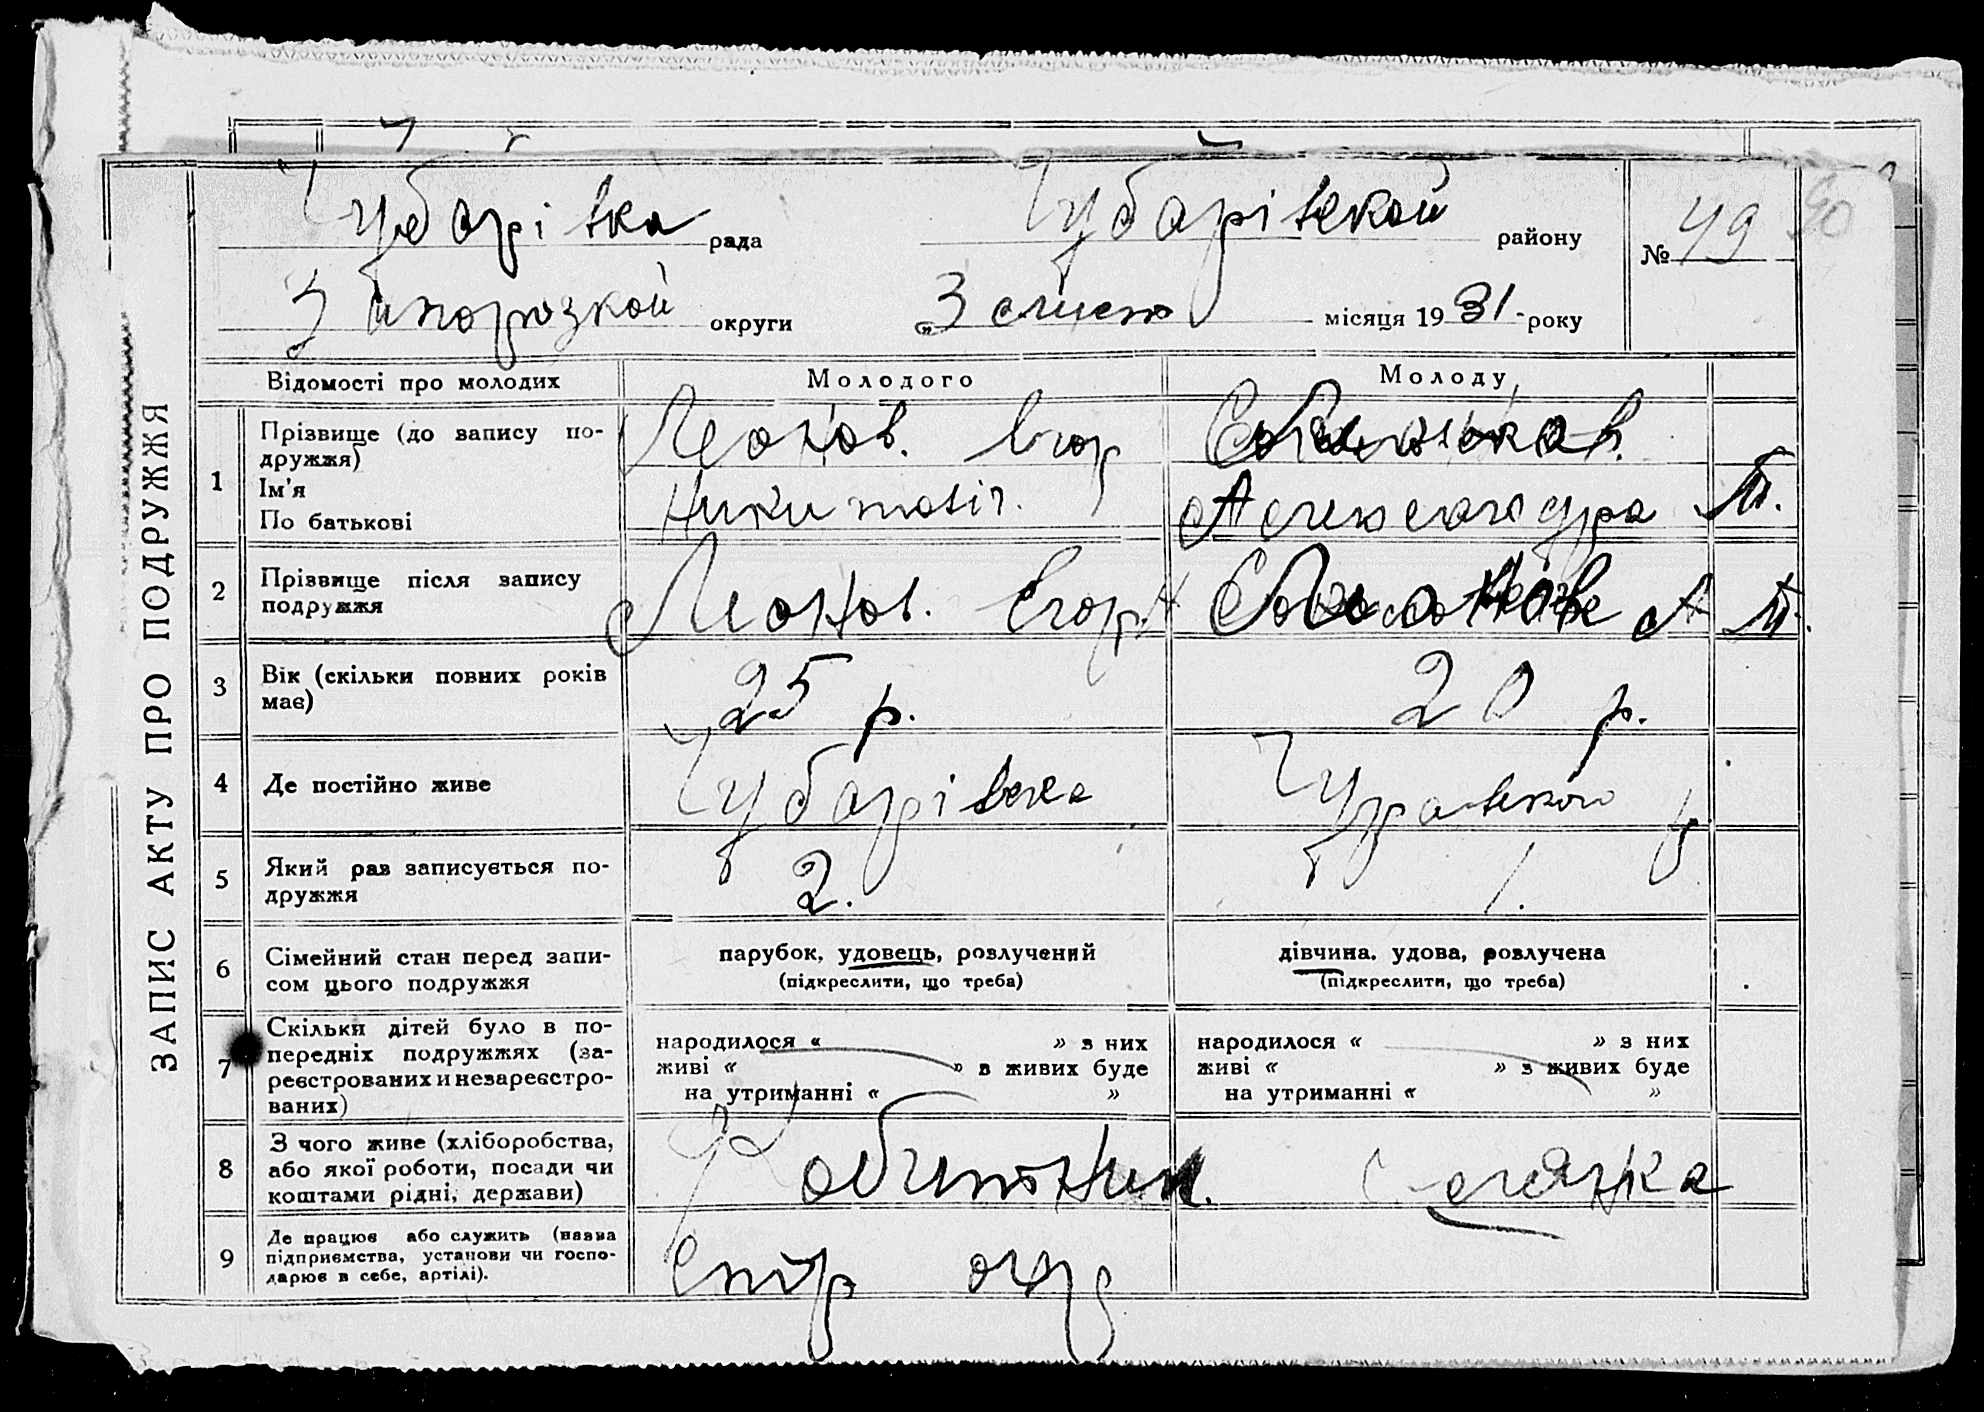 ЗАПИС АКТУ ПРО ПОДРУЖЖЯ
Чубарівка рада Чубарівской району № 49 50
Запорозкой округи „3 місяця 1931 року
Відомості про молодих Молодого Молоду
1 Прізвище (до запису по-
дружжя)
Ім'я
По батькові
Леонов. Єгор
Никитовіч.
Александра
2 Прізвище після запису
подружжя
Леонов. Єгор Н
А
3 Вік (скільки повних років
має)
25 р. 20 р.
4 Де постійно живе Чубарівка
5 Який раз записується по-
дружжя
2. 1.
6 Сімейний стан перед запи-
сом цього подружжя
парубок, удовець, розлучений
(підкреслити, що треба)
дівчина. удова, розлучена
(підкреслити, що треба)
7 Скільки дітей було в по-
передніх подружжях (за-
реєстрованих и незареєстро-
ваних)
народилося « » з них
живі « » в живих буде
на утриманні « »
народилося « » з них
живі « » з живих буде
на утриманні « »
8 З чого живе (хліборобства,
або якої роботи, посади чи
коштами рідні, держави)
Робитник. Селянка
9 Де працює або служить (назва
підприємства, установи чи госпо-
дарює в себе, артілі).